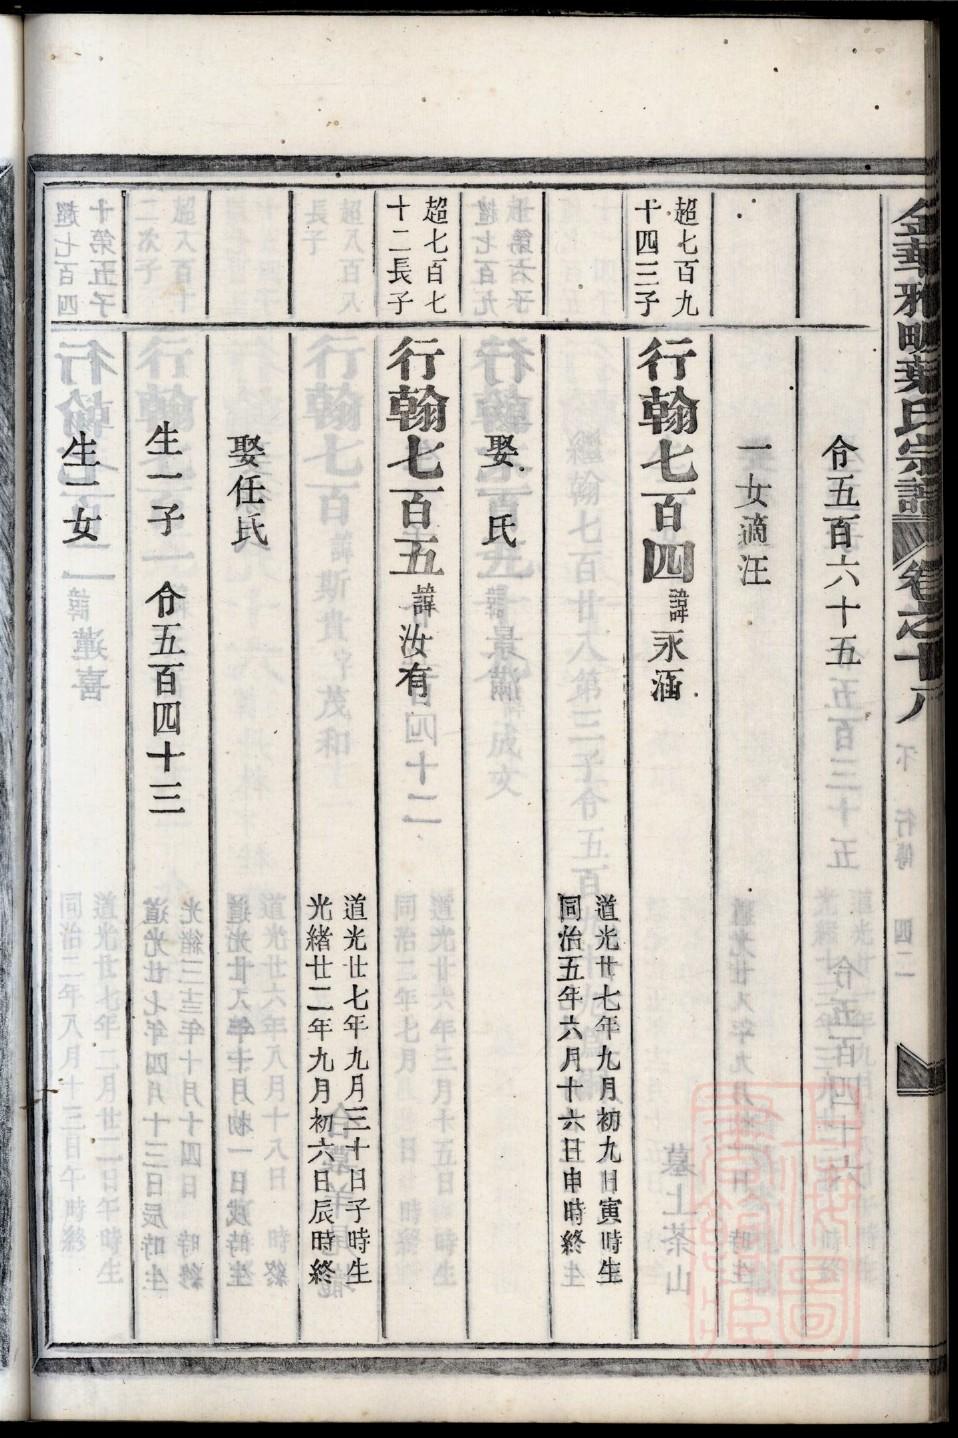 金華雅畈葉氏宗譜
卷之十八
行傳
四二
令五百六十五
一女適汪
超七百九
十四三子
行翰七百四 諱永涵
道光廿七年九月初九日寅時生
同治五年六月十六日申時終
娶 氏
超七百七
十二長子
行翰七百五 諱汝有
道光廿七年九月三十日子時生
光緒廿二年九月初六日辰時終
娶任氏
生一子 令五百四十三
生一女